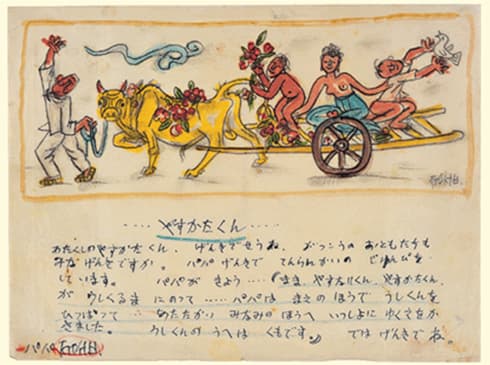 ‥‥やすかたくん‥‥
わたくしのやすかたくん、げんきでせうね。がっこうのおともたちも
みなげんきですか。パパ げんきで てんらんかいの じゅんびを
しています。 パパが きよう‥‥(まま、やすなりくん、やすかたくん、
が うしくるまに のって‥‥パパは まえのほうで うしくんを
ひっぱって‥‥あたたかい みなみのほうへ いつしよに ゆくえをか
きました。 うしくんの うへは くもです。) では げんきで ね。
パパ